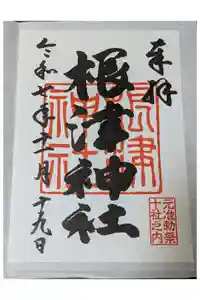 奉拝
根津神社
令和七年十一月十九日
根津神社
元准勅祭
十社之内